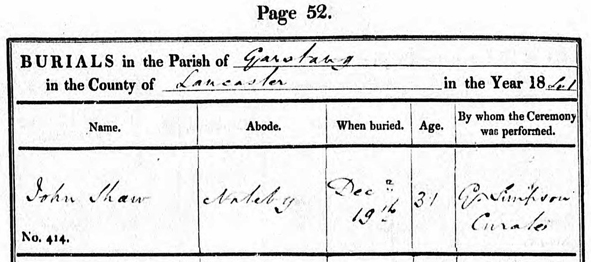 Page 52.
BURIALS in the Parish of Garstang
in the County of Lancaster in the Year 18
Name. Abode. When buried. Age. By whom the Ceremony was performed.
John Shaw Nateby Decr 19th 31 G. Simpson
Curate
No. 414.